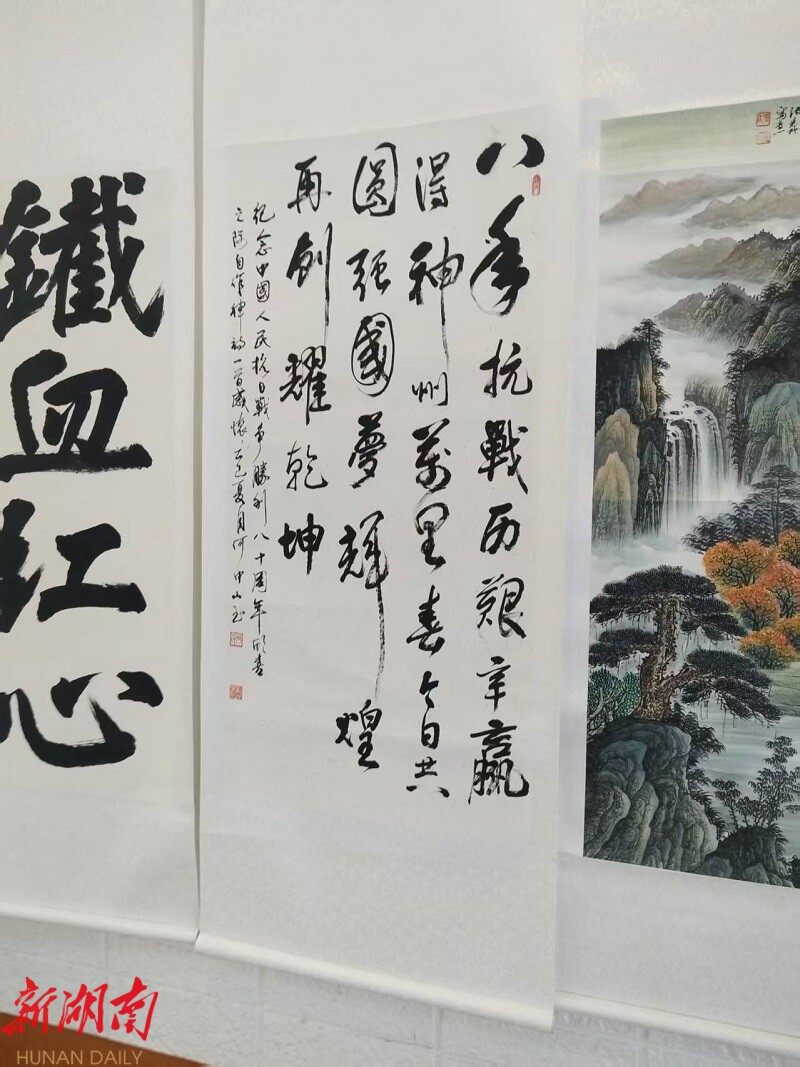 八年抗戰历艱辛赢
得神州萬里春今日共
圓强國夢輝煌
再创耀乾坤
紀念中國人民抗日戰争勝利八十周年欣喜
之际自作 一首感怀乙巳夏月何中山书
鐵血红心
新湖南
HUNAN DAILY